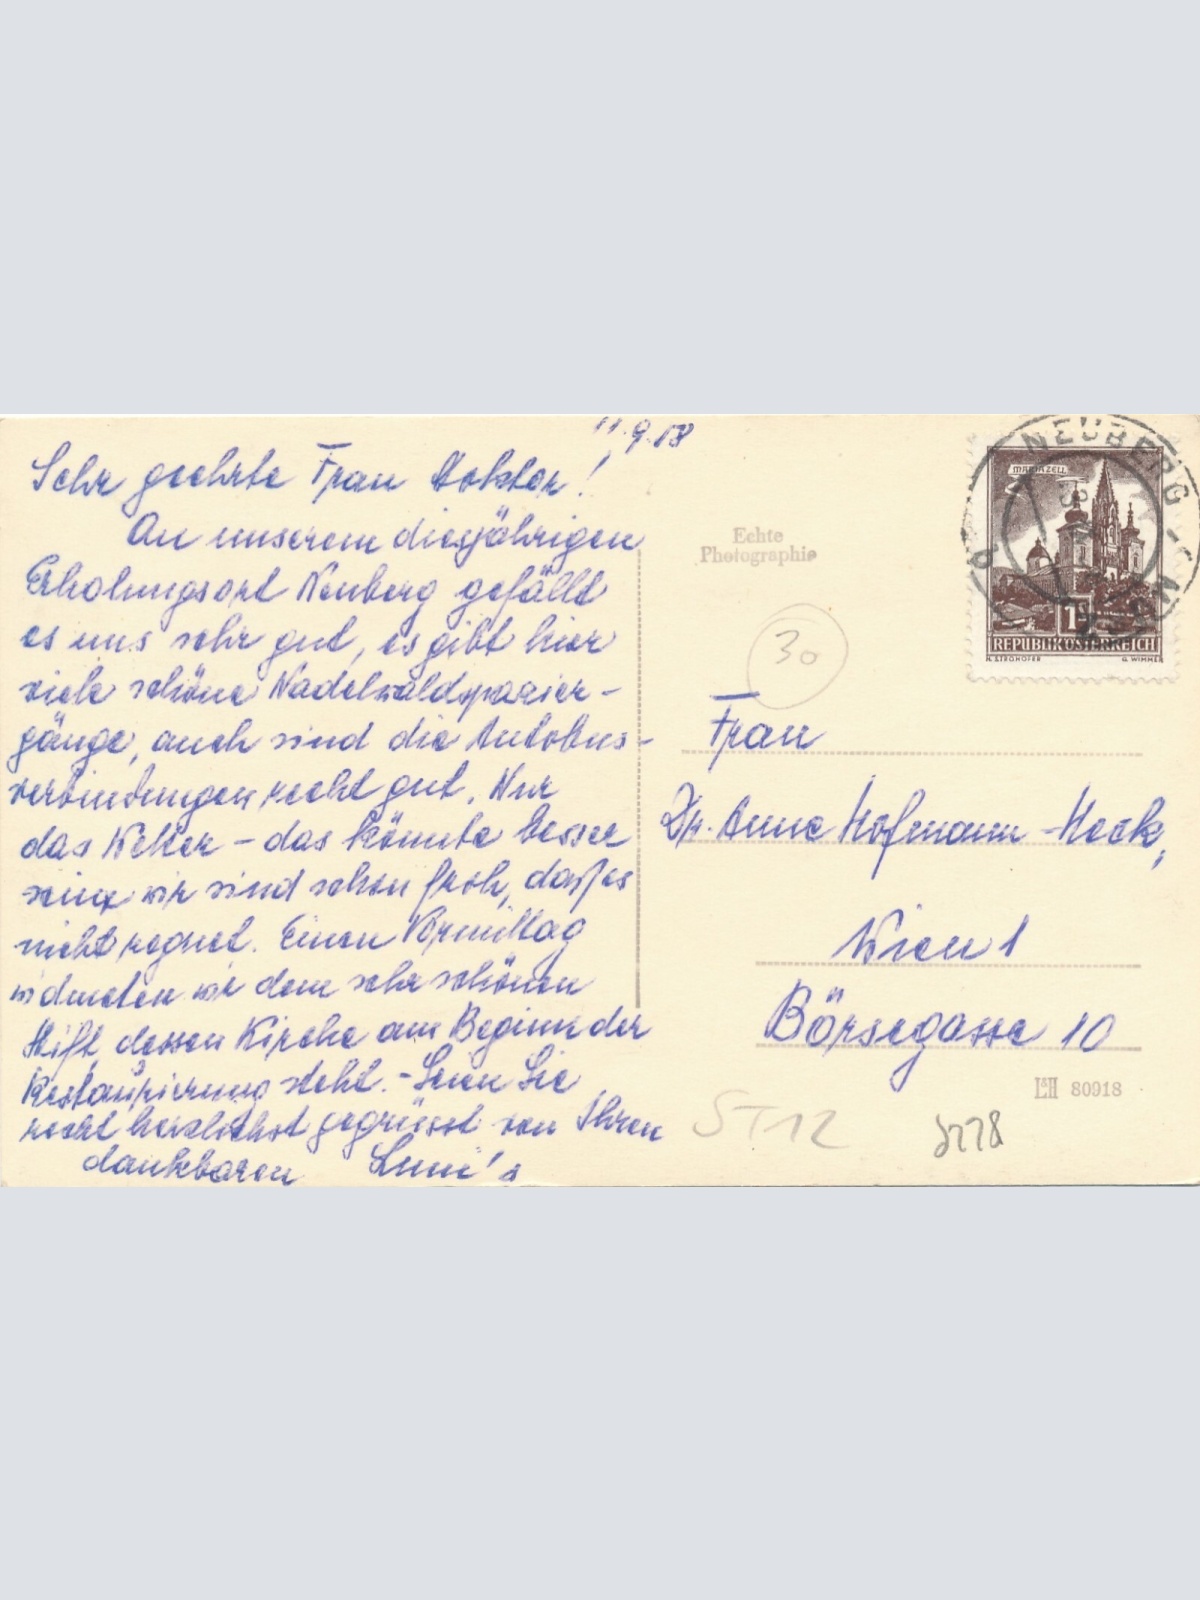 11.9.58
Sehr geehrte Frau Doktor!
An unserem diesjährigen
Erholungsort Neuberg gefällt
es uns sehr gut, es gibt hier
viele schöne Nadelwaldspazier-
gänge, auch sind die Autobus-
verbindungen recht gut. Nur
das Wetter - das könnte besser
sein, wir sind schon froh, daß es
nicht regnet. Einen Vormittag
widmeten wir dem sehr schönen
Stift, dessen Kirche am Beginn der
Restaurierung steht. - Seien Sie
recht herzlichst gegrüsst von Ihren
dankbaren
Echte
Photographie
30
NEUBERG
MARIAZELL
1
REPUBLIK ÖSTERREICH
G. WIMMER
Frau
Dr. Anna Hofmann-
Wien 1
Börsegasse 10
L&H 80918
ST12